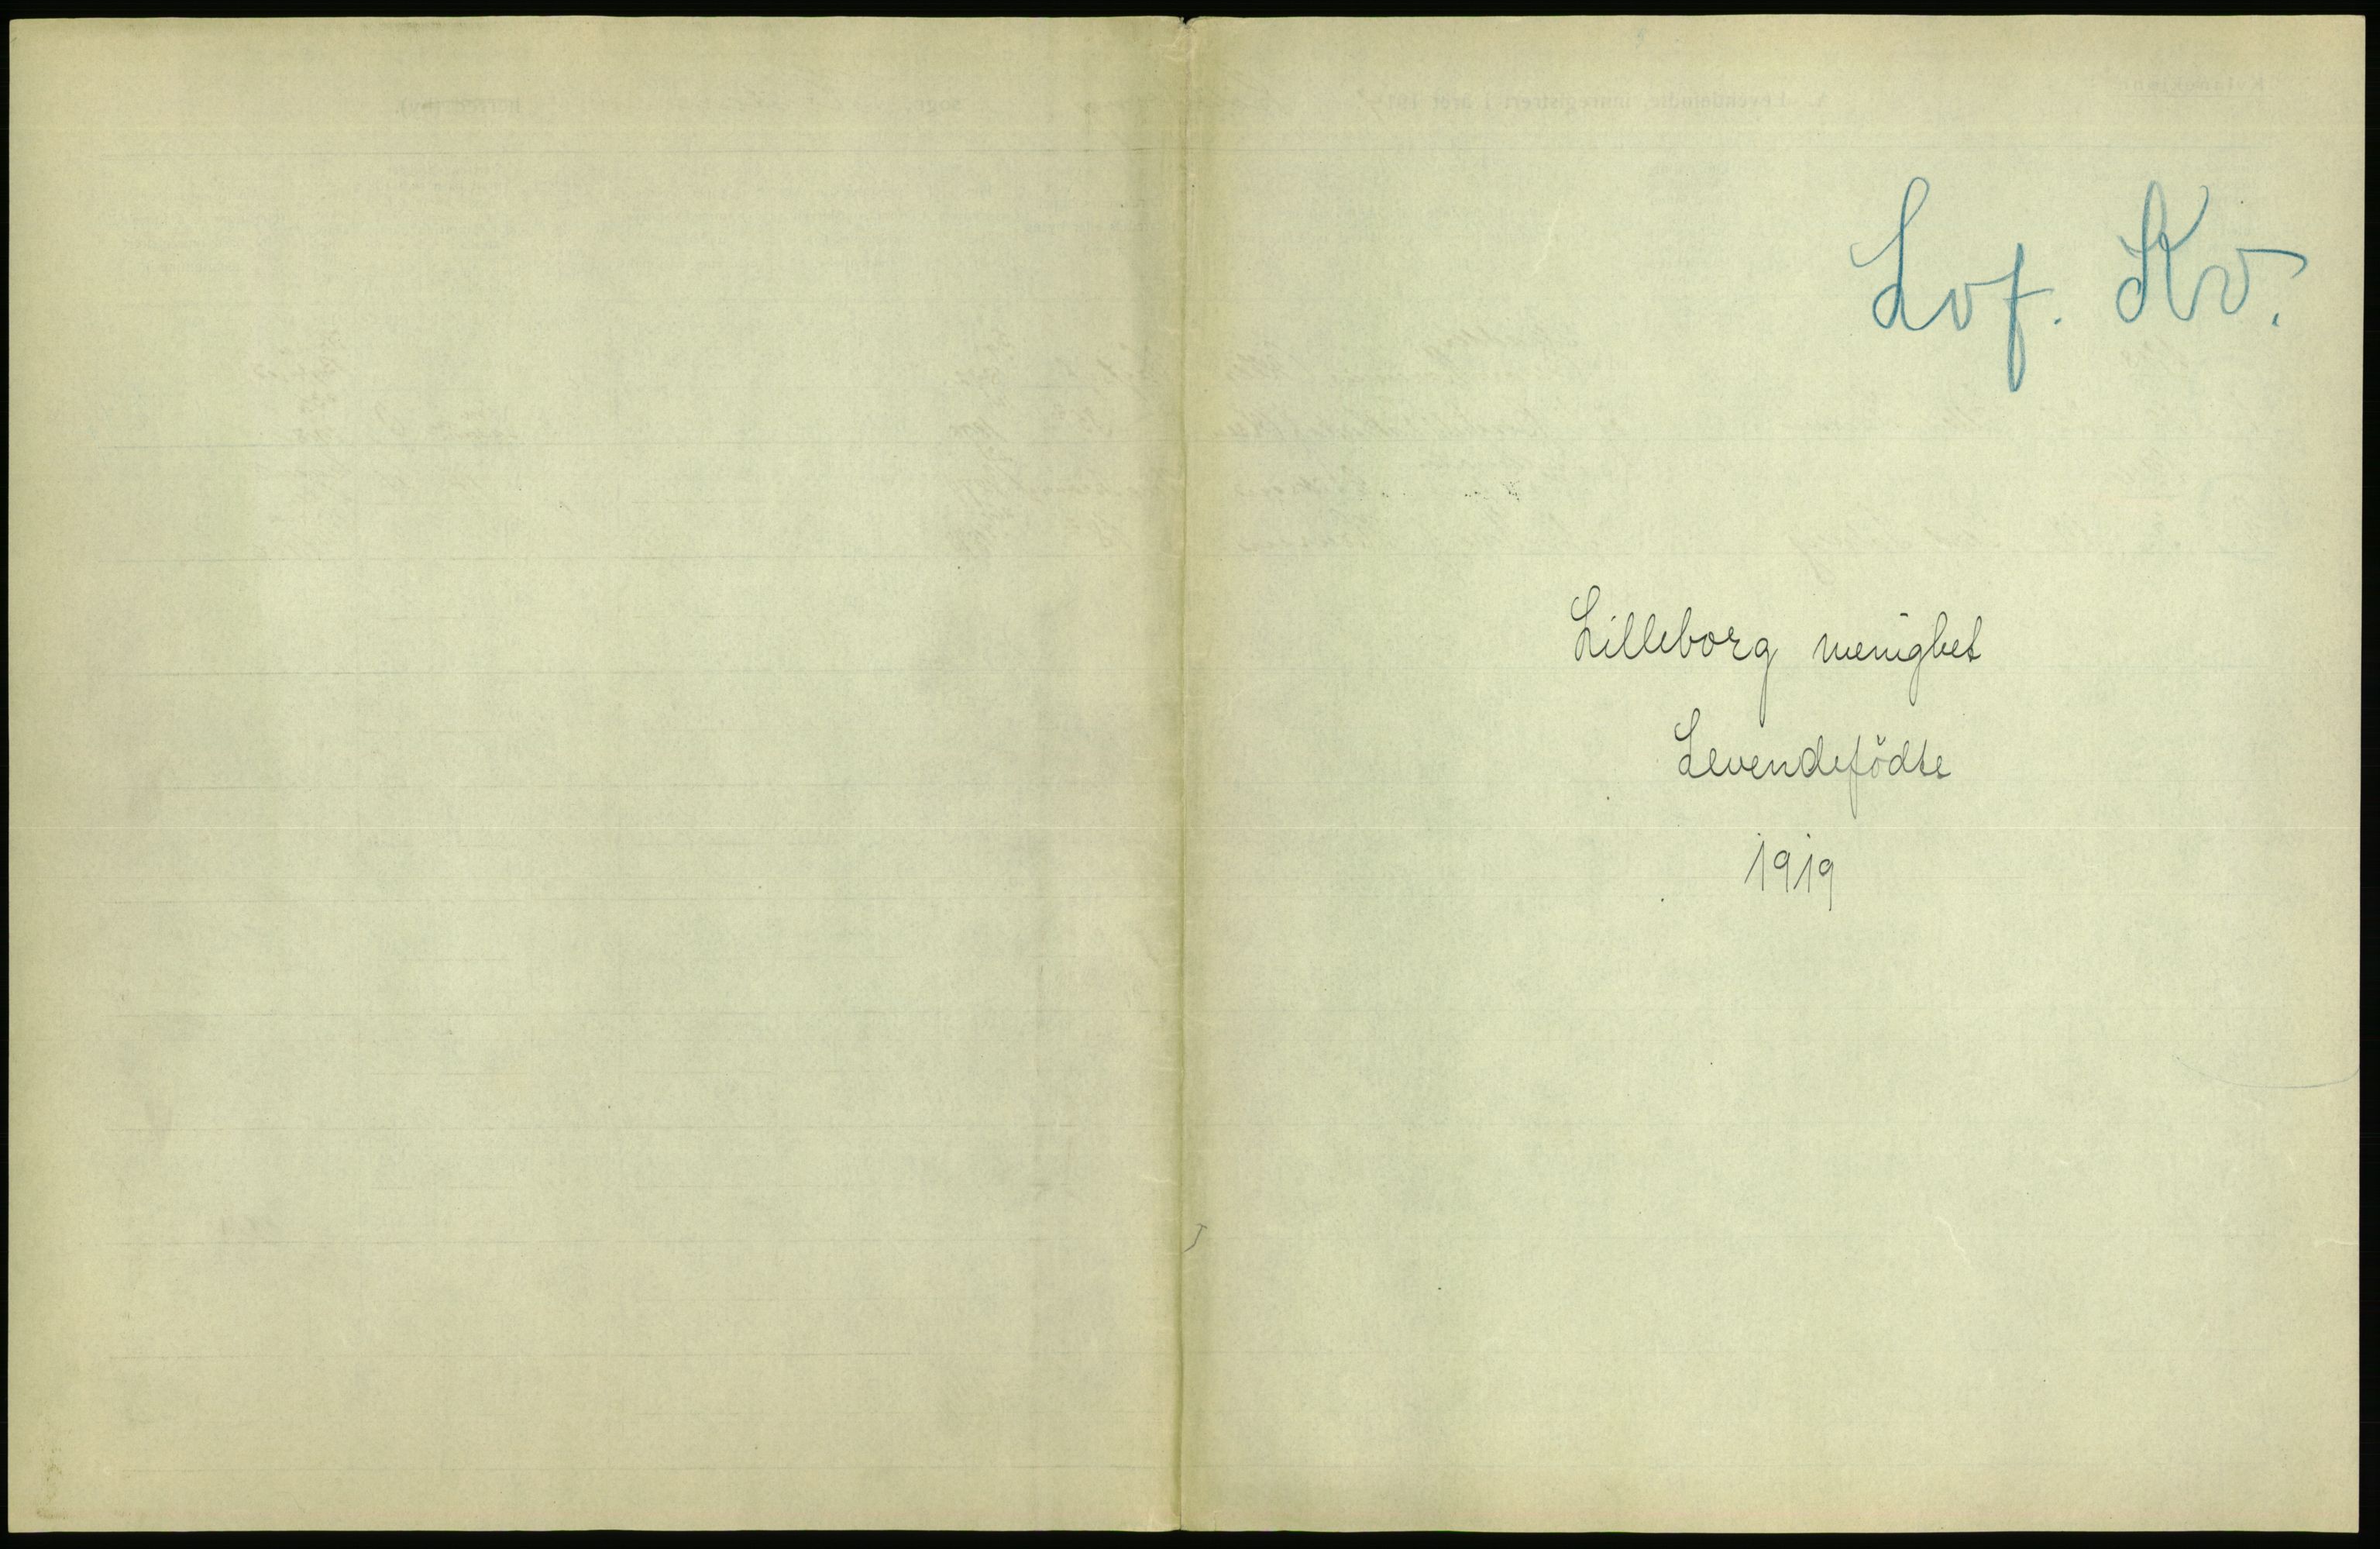 Lvf. Kv.
Lilleborg menighet
Levendefödte
1919